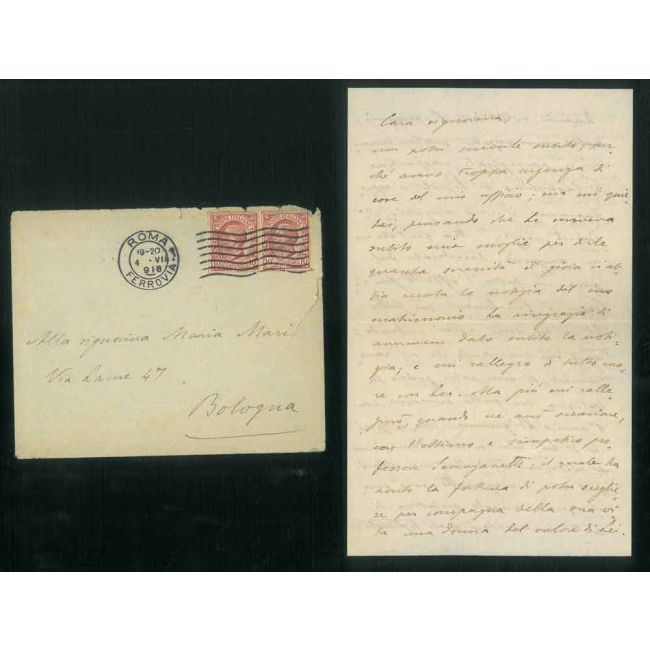 ROMA
19-20
4 · VII
918
FERROVIA
POSTE ITALIANE
POSTE ITALIANE
Alla signorina Maria Mari
Via Lame 47
Bologna
Cara signorina,
non potei scriverle subito, per-
ché avevo troppa urgenza di
cose del mio ufficio; ma mi quie-
tai, pensando che Le scriveva
subito mia moglie per dirle
quanta serenità di gioia ci ab-
bia recata la notizia del suo
matrimonio. La ringrazio di
avermene dato subito la noti-
zia; e mi rallegro di tutto cuo-
re con Lei. Ma più mi ralle-
grerò, quando ne avrò occasione,
con l'ottimo e simpatico pro-
fessore il quale ha
avuto la fortuna di poter sceglie-
re per compagna della sua vi-
ta una donna del valore di Lei.